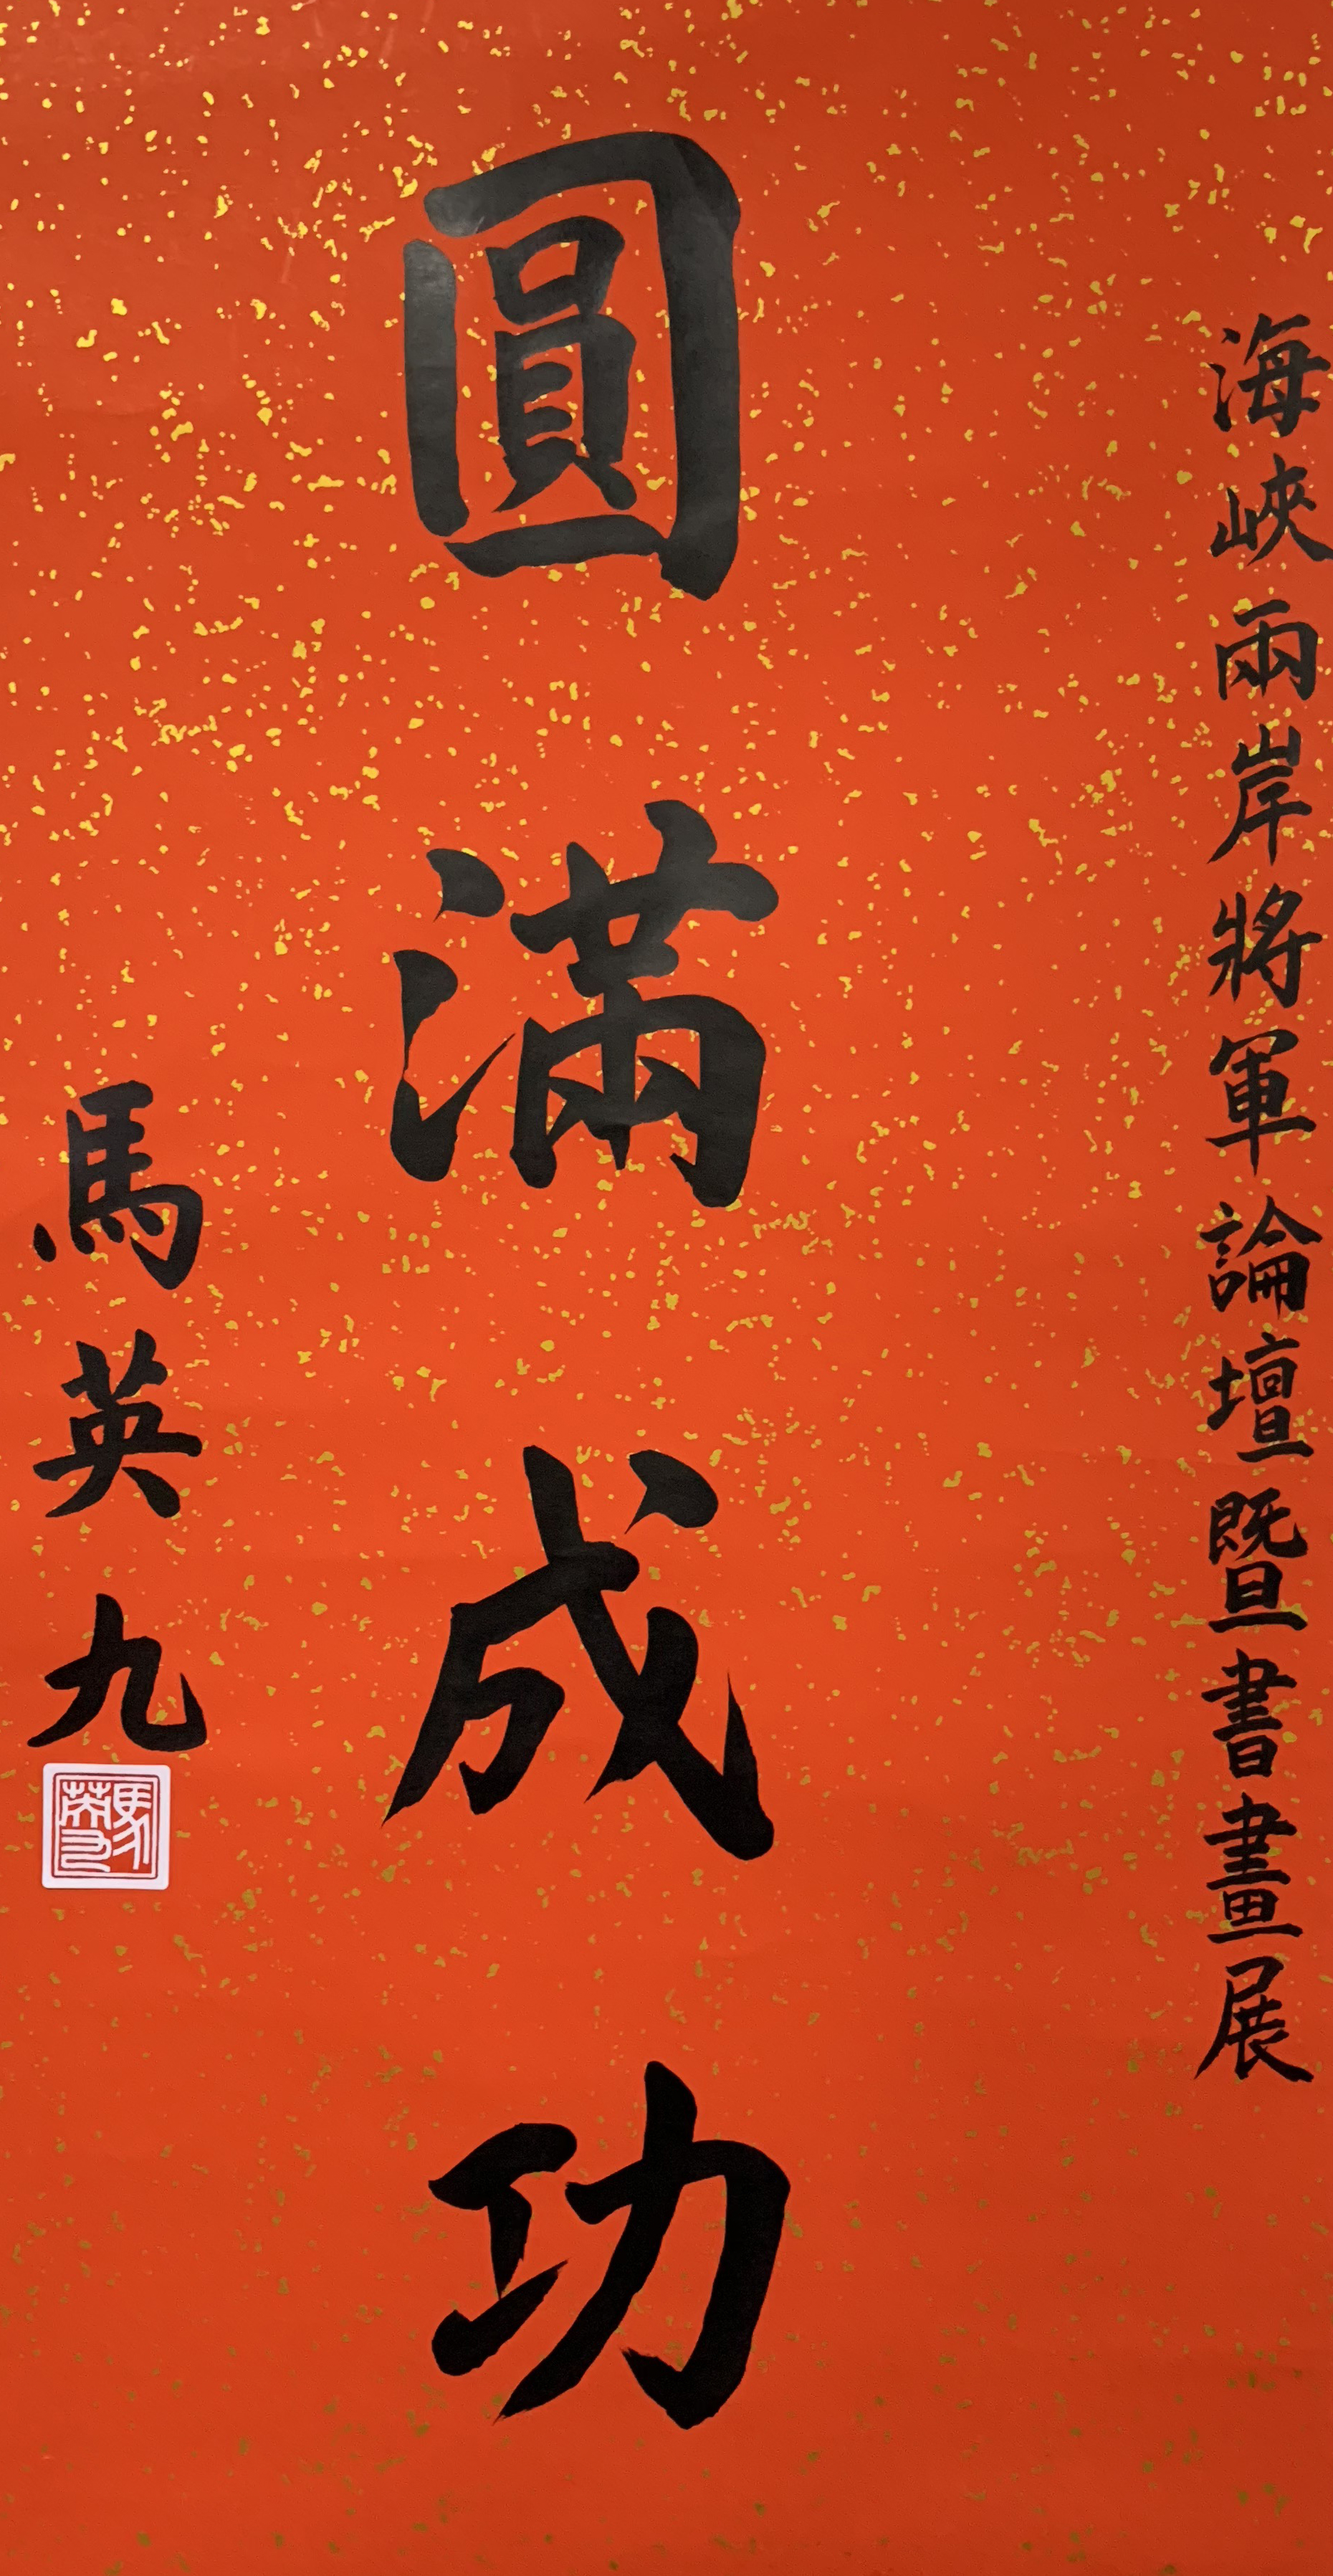 海峽兩岸將軍論壇暨書畫展
圓滿成功
馬英九
馬英九